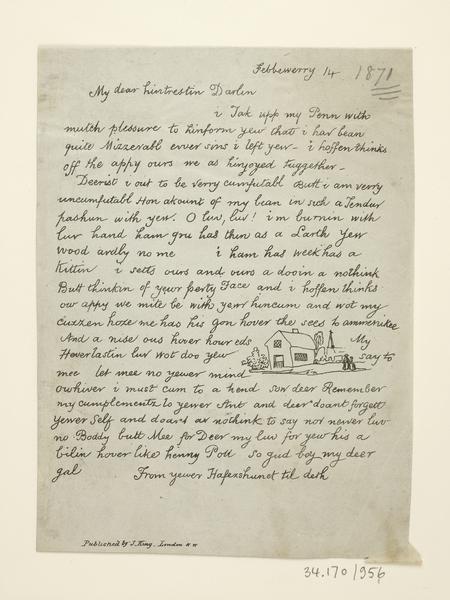 Febbewerry 14 1871
My dear hintrestin Darlen
i Tak upp my Penn with
mutch plessure to hinform yew that i hav bean
quite Mizzerabl evver sins i left yew- i hoffen thinks
off the appy ours we as hinjoyed tuggether-
Deerist i out to be verry cumfutabl Butt i am verry
uncumfutabl Hon akount of my bean in such a Tendur
pashun with yew. O luv, luv! im burnin with
luv hand ham gru has thin as a Larth Yew
wood ardly no me i ham has week has a
Kittin i setts ours and ours a dooin a nothink
Butt thinkin of yewr perty Face and i hoffen thinks
ow appy we mite be with yewr hincum and wot my
cuzzen hoze me has his gon hover the sees to ammirikee
And a nise ous hover hour eds My
Heverlastin luv wot doo yew say to
mee let mee no yewer mind
owhiver i must cum to a hend sow deer Remember
my cumplements to yewer Ant and deer doant forgett
yewer Self and doant ax nothink to say nor newer luv
no Boddy butt Mee for Deer my luv for yew his a
bilin hover like henny Pott so gud boy my deer
gal From yewer Hafexshunet til deth
Published by J. King, London
34.170/956